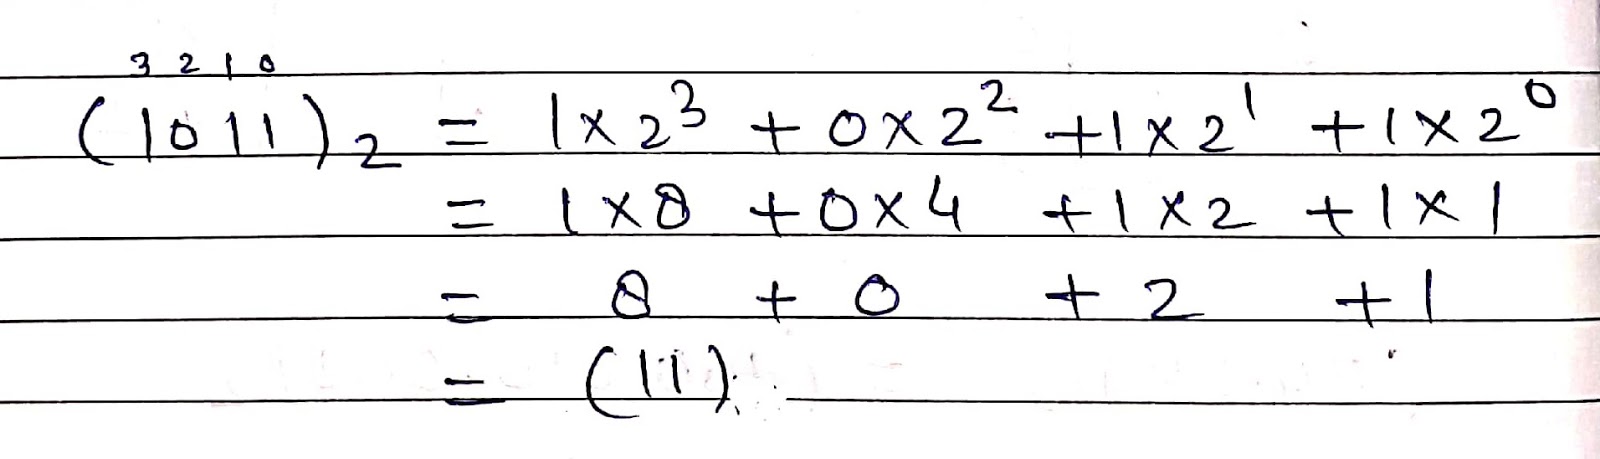 3 2 1 0
(1011)₂ = 1×2³ + 0×2² + 1×2¹ + 1×2⁰
= 1×8 + 0×4 + 1×2 + 1×1
= 8 + 0 + 2 + 1
= (11)